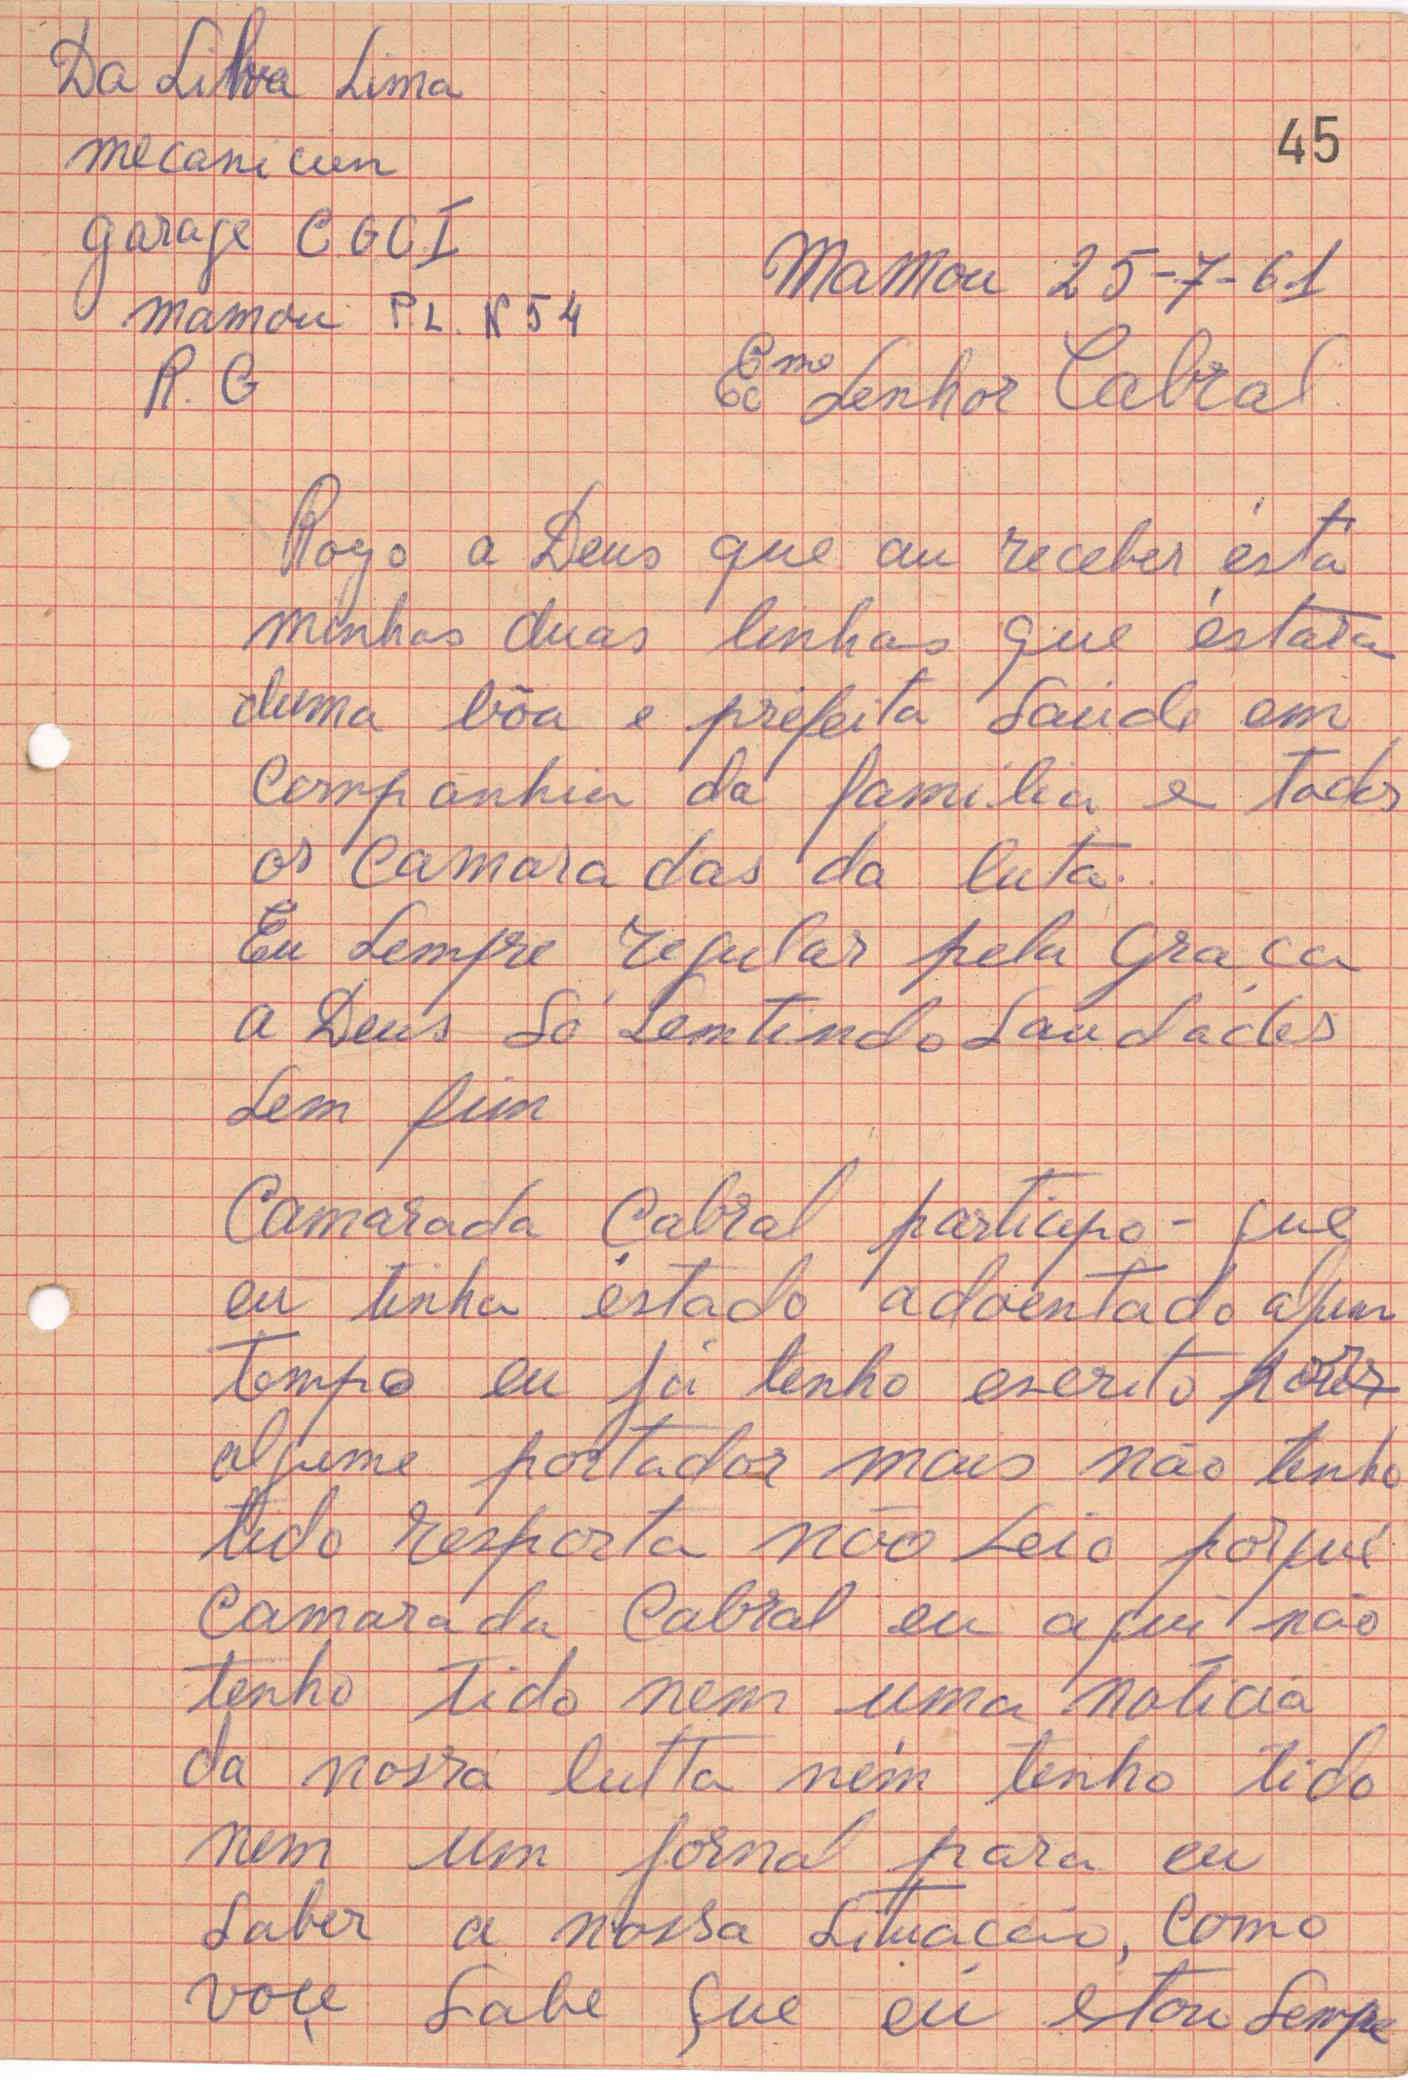 Da Silva Lima
mecanicien
garage C G C I
mamou P.L. N 54
R. G
45
Mamou 25-7-61
Senhor Cabral
Rogo a Deus que au receber ésta
minhas duas linhas que éstara
duma bõa e prefeita Saúde em
Companhia da familia e todos
os Camaradas da luta.
Eu Sempre regular pela Graça
a Deus Só Semtindo Saudades
Sem fim
Camarada Cabral participo - que
eu tinha éstado adoentado algum
tempo eu já tenho escrito por
algume portador mais não tenho
tido resposta não Seio porqué
Camarada Cabral eu aqui não
tenho tido nem uma noticia
da nossa lutta ném tenho tido
nem um jornal para eu
Saber a nossa Situação, Como
voçe Sabe que eu estou Sempre